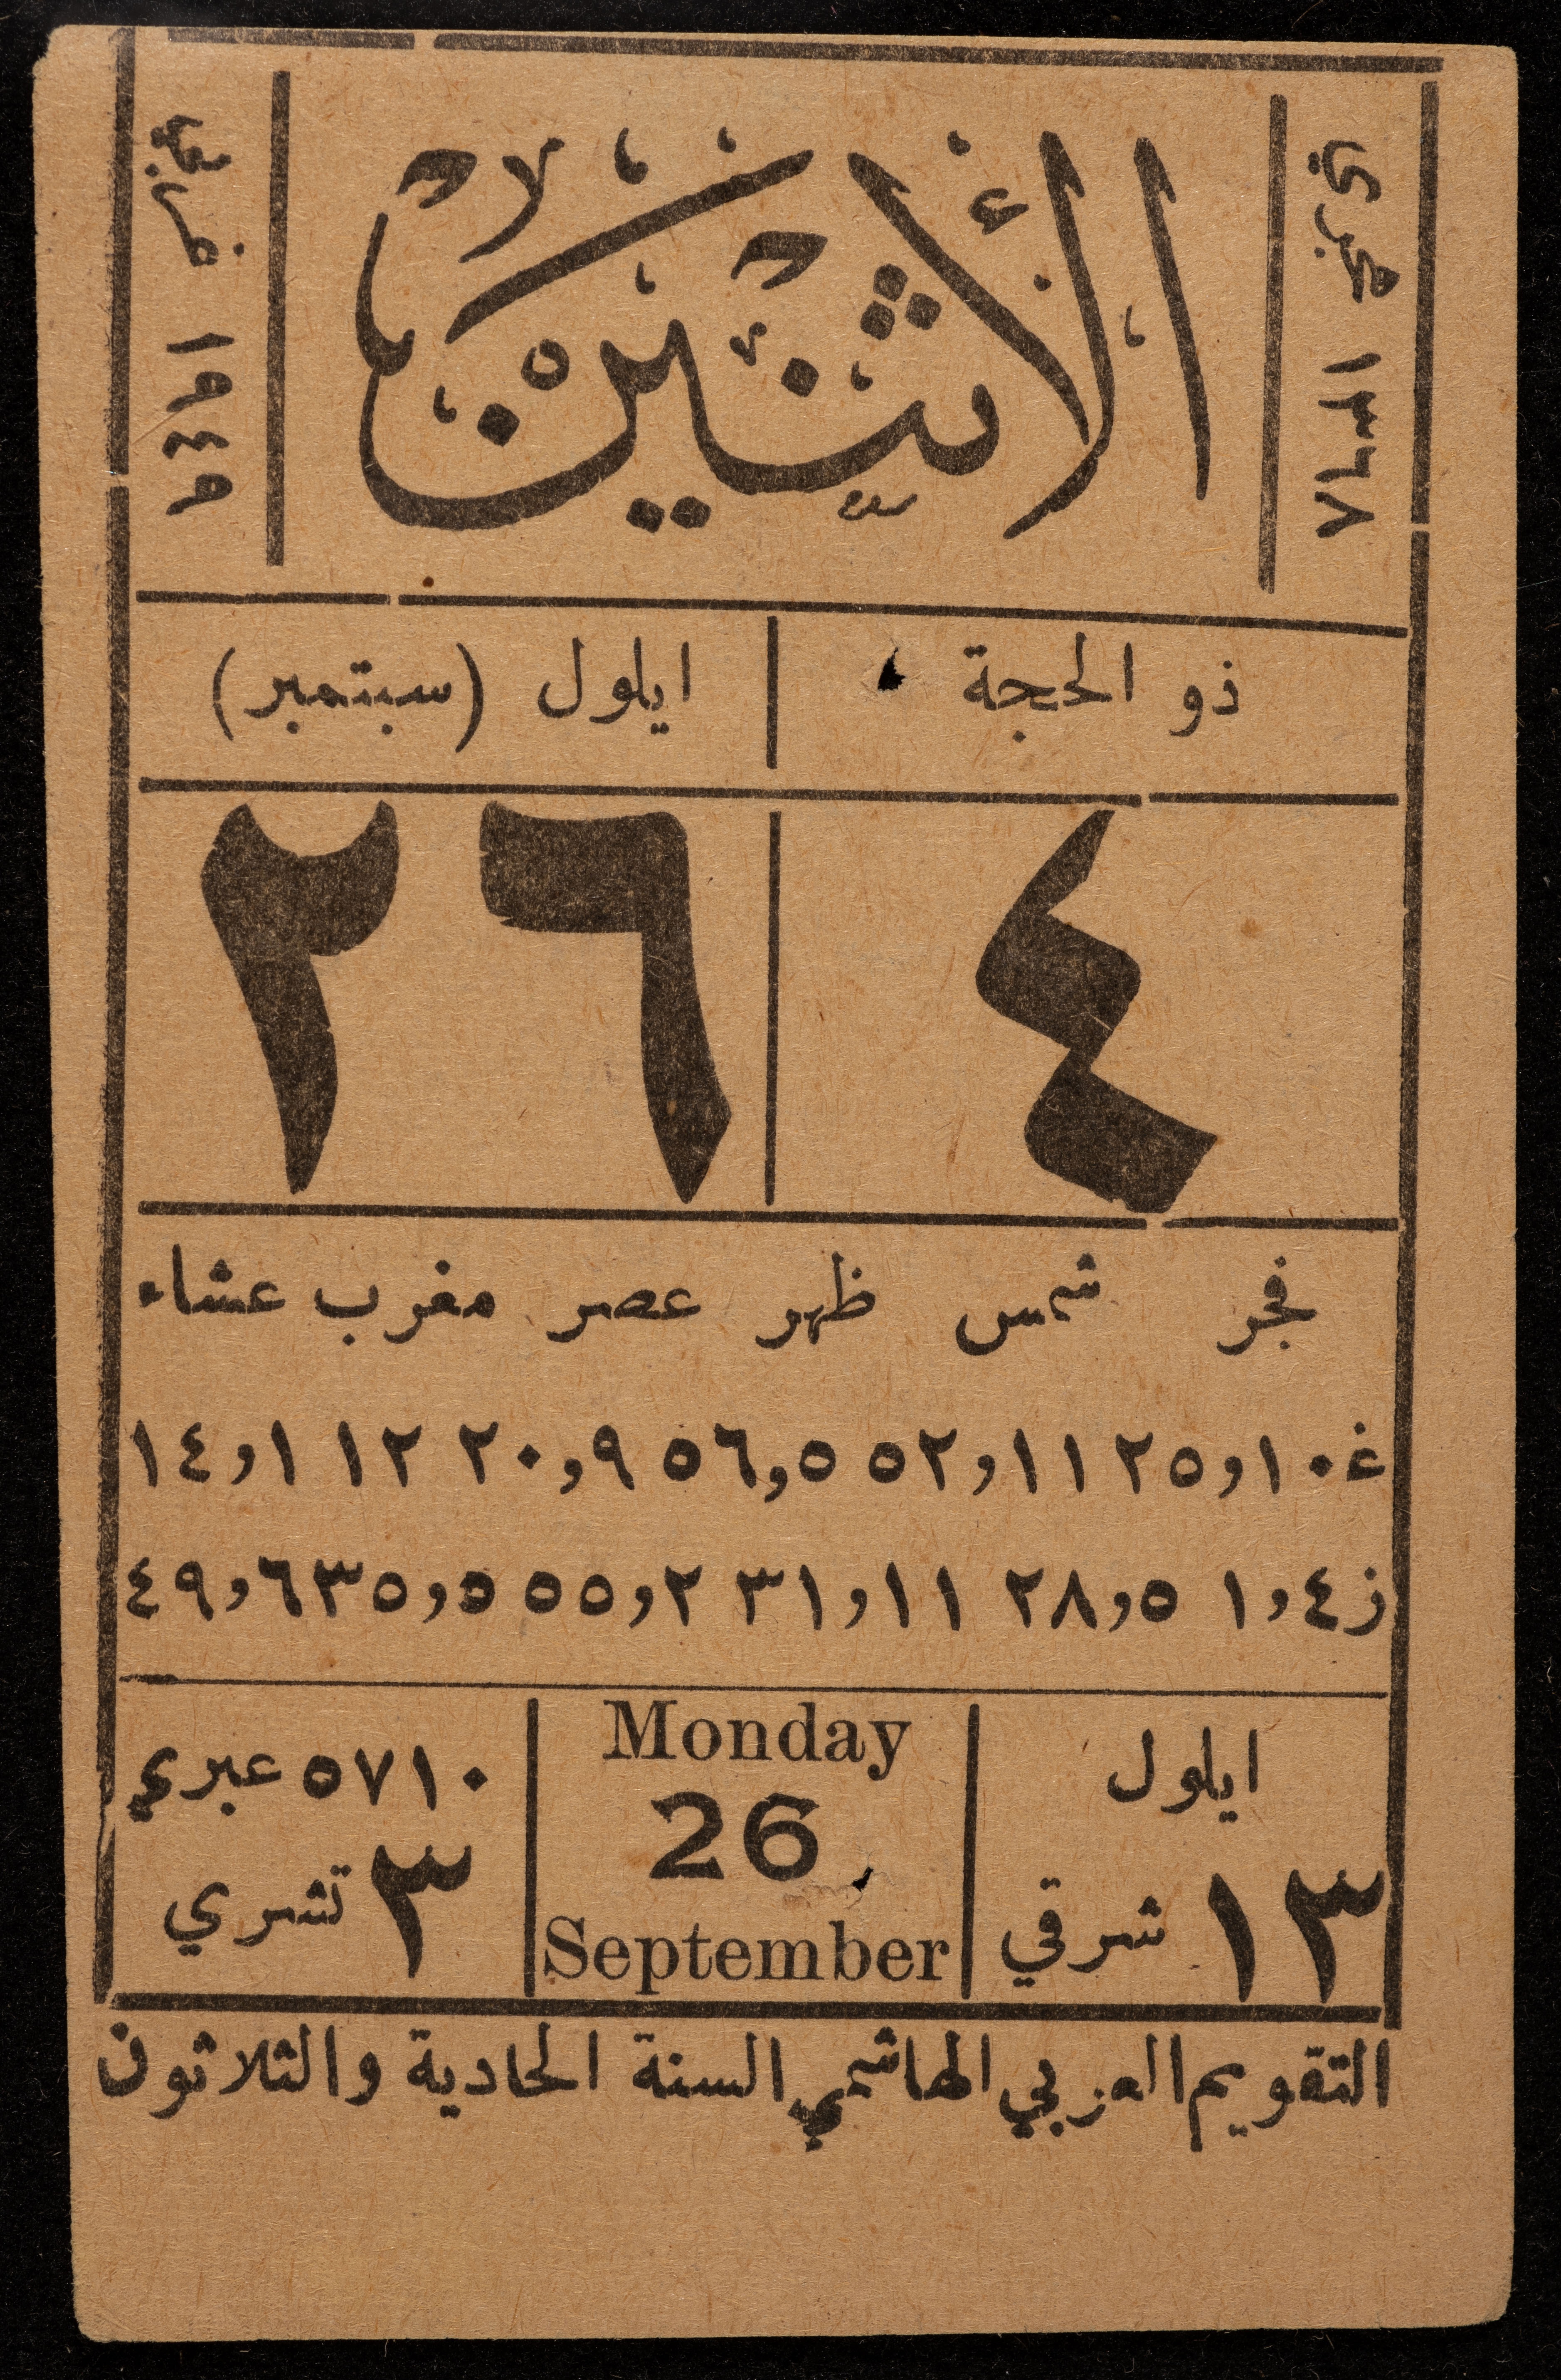 ١٣٦٨ هجري
الأثنين
١٩٤٩ غربي
ذو الحجة
ايلول (سبتمبر)
٤
٢٦
فجر شمس ظهر عصر مغرب عشاء
غ ١٠و٢٥ ١١و٥٢ ٥و٥٦ ٩و٢٠ ١٢ ١و١٤
ز ٤و١ ٥و٢٨ ١١و٣١ ٢و٥٥ ٥و٣٥ ٦و٤٩
ايلول
١٣ شرقي
Monday
26
September
٥٧١٠ عبري
٣ تشري
التقويم العربي الهاشمي السنة الحادية والثلاثون